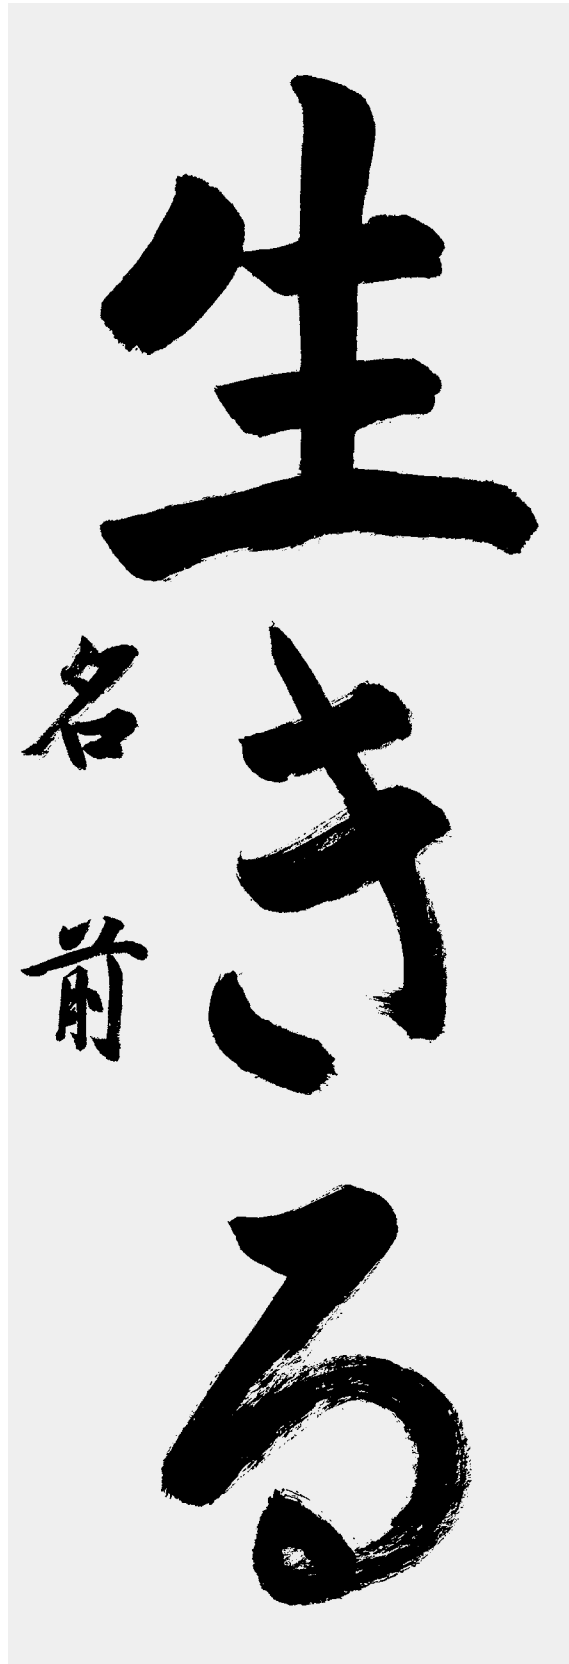 生きる
名前